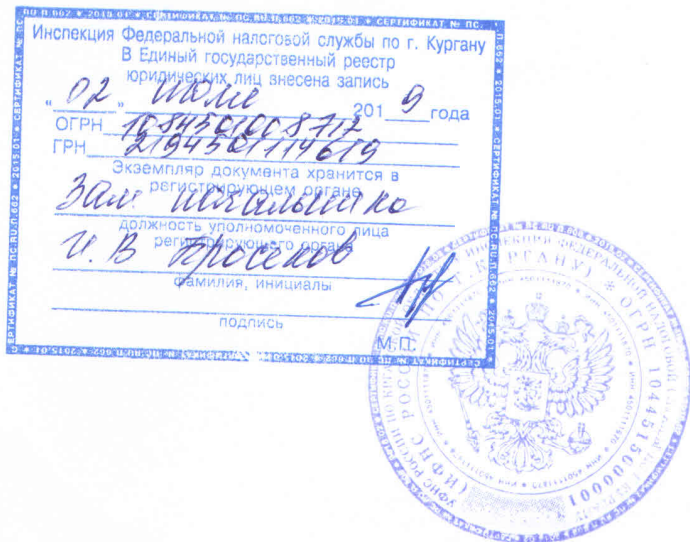 Инспекция Федеральной налоговой службы по г. Кургану
В Единый государственный реестр
юридических лиц внесена запись
" 02 " июля 2019 года
ОГРН 1084501008712
ГРН 2194501114619
Экземпляр документа хранится в
регистрирующем органе
Зам. начальника
должность уполномоченного лица
регистрирующего органа
И. В
фамилия, инициалы
подпись
М.П.
СЕРТИФИКАТ № ПС.RU.П.662 * 2015.01 *
ОГРН 1044515000001
ИНН 4501111870